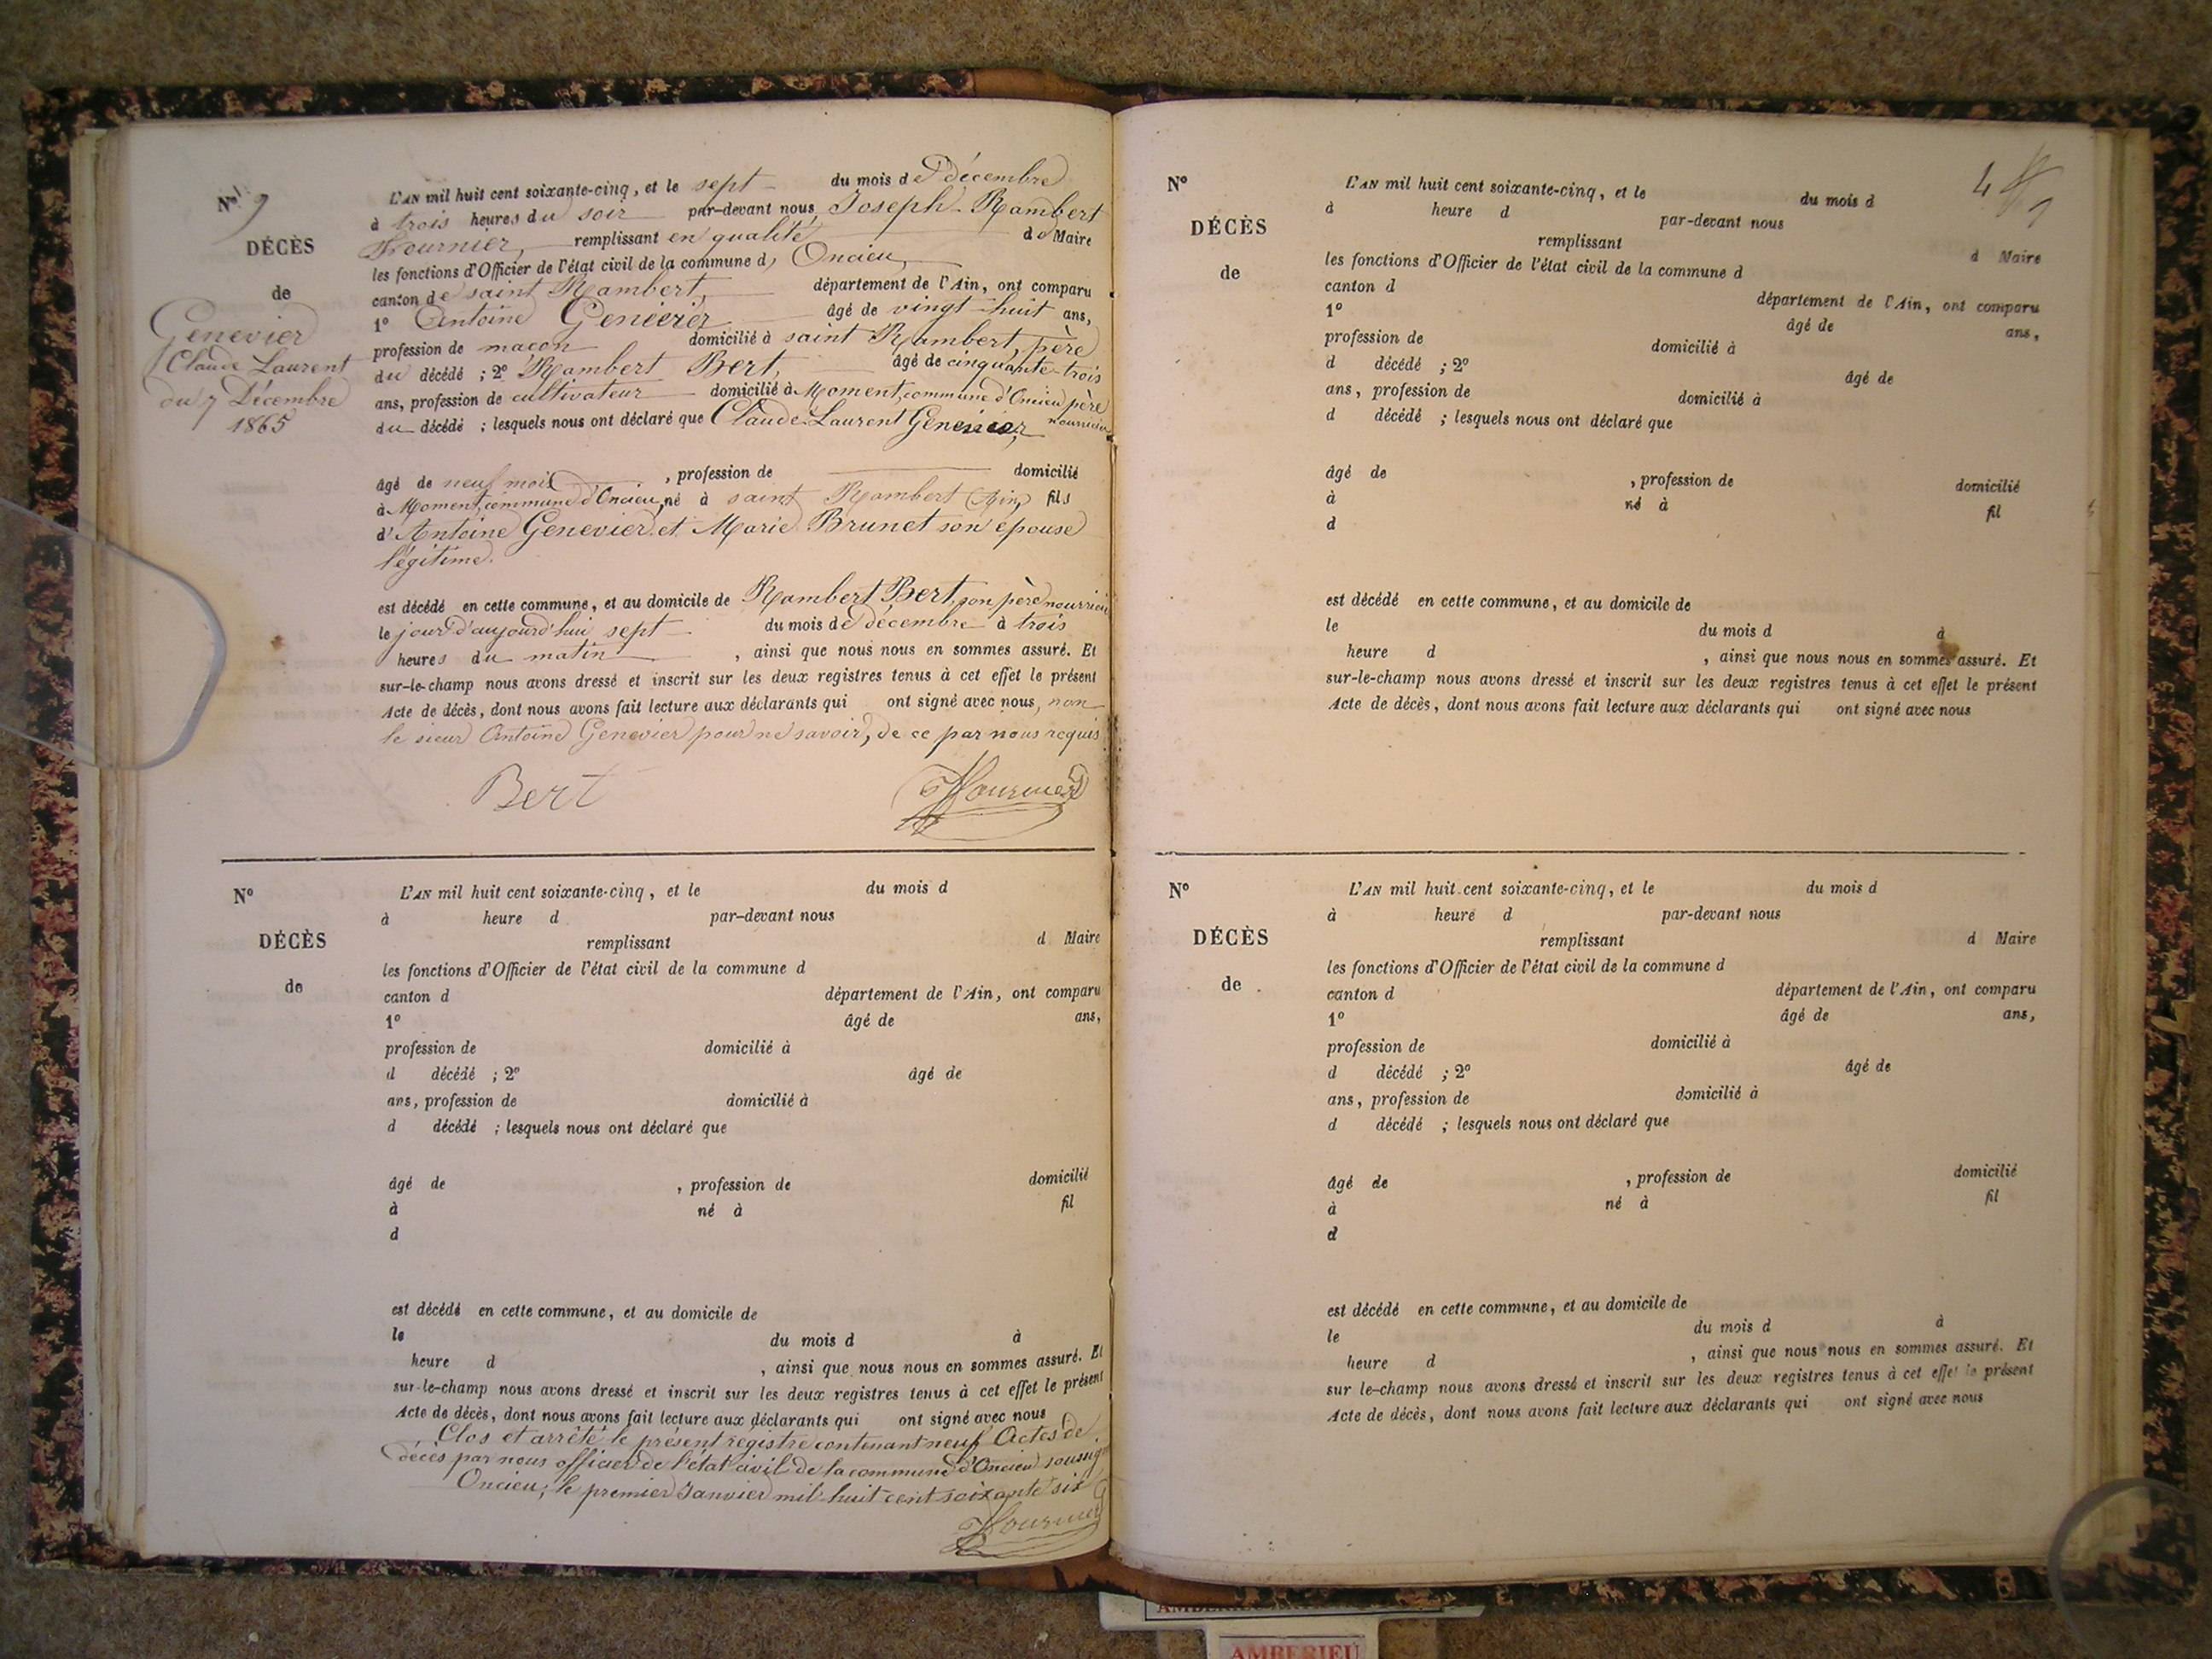 N° 9
DÉCÈS
de
Genevier
Claude Laurent
du 7 Décembre
1865
L'AN mil huit cent soixante-cinq, et le sept du mois de décembre
à trois heures du soir par-devant nous, Joseph Rambert
Fournier, remplissant en qualité de Maire
les fonctions d'Officier de l'état civil de la commune d, Oncieu,
canton de saint Rambert, département de l'Ain, ont comparu
1° Antoine Genevier âgé de vingt-huit ans,
profession de maçon domicilié à saint Rambert, père
du décédé ; 2° Rambert Bert, âgé de cinquante-trois
ans, profession de cultivateur domicilié à Moment, commune d'Oncieu père
du décédé ; lesquels nous ont déclaré que Claude Laurent Genevier, nourricier
âgé de neuf mois , profession de domicilié
à Moment, commune d'Oncieu, né à saint Rambert (Ain) fils
d'Antoine Genevier et Marie Brunet son épouse
légitime.
est décédé en cette commune, et au domicile de Rambert Bert, son père nourricier
le jour d'aujourd'hui sept du mois de décembre à trois
heures du matin , ainsi que nous nous en sommes assuré. Et
sur-le-champ nous avons dressé et inscrit sur les deux registres tenus à cet effet le présent
Acte de décès, dont nous avons fait lecture aux déclarants qui ont signé avec nous, non
le sieur Antoine Genevier pour ne savoir, de ce par nous requis
Bert Fournier
N°
DÉCÈS
de
L'AN mil huit cent soixante-cinq, et le du mois d
à heure d par-devant nous
remplissant d Maire
les fonctions d'Officier de l'état civil de la commune d
canton d département de l'Ain, ont comparu
1° âgé de ans,
profession de domicilié à
d décédé ; 2° âgé de
ans, profession de domicilié à
d décédé ; lesquels nous ont déclaré que
âgé de , profession de domicilié
à né à fil
d
est décédé en cette commune, et au domicile de
le du mois d à
heure d , ainsi que nous nous en sommes assuré. Et
sur-le-champ nous avons dressé et inscrit sur les deux registres tenus à cet effet le présent
Acte de décès, dont nous avons fait lecture aux déclarants qui ont signé avec nous
Clos et arrêté le présent registre contenant neuf Actes de
décès par nous officier de l'état civil de la commune d'Oncieu soussig
Oncieu, le premier Janvier mil huit cent soixante six
Fournier
N°
DÉCÈS
de
L'AN mil huit cent soixante-cinq, et le du mois d
à heure d par-devant nous
remplissant d Maire
les fonctions d'Officier de l'état civil de la commune d
canton d département de l'Ain, ont comparu
1° âgé de ans,
profession de domicilié à
d décédé ; 2° âgé de
ans, profession de domicilié à
d décédé ; lesquels nous ont déclaré que
âgé de , profession de domicilié
à né à fil
d
est décédé en cette commune, et au domicile de
le du mois d à
heure d , ainsi que nous nous en sommes assuré. Et
sur-le-champ nous avons dressé et inscrit sur les deux registres tenus à cet effet le présent
Acte de décès, dont nous avons fait lecture aux déclarants qui ont signé avec nous
N°
DÉCÈS
de
L'AN mil huit cent soixante-cinq, et le du mois d
à heure d par-devant nous
remplissant d Maire
les fonctions d'Officier de l'état civil de la commune d
canton d département de l'Ain, ont comparu
1° âgé de ans,
profession de domicilié à
d décédé ; 2° âgé de
ans, profession de domicilié à
d décédé ; lesquels nous ont déclaré que
âgé de , profession de domicilié
à né à fil
d
est décédé en cette commune, et au domicile de
le du mois d à
heure d , ainsi que nous nous en sommes assuré. Et
sur le-champ nous avons dressé et inscrit sur les deux registres tenus à cet effet le présent
Acte de décès, dont nous avons fait lecture aux déclarants qui ont signé avec nous
AMBERIEU